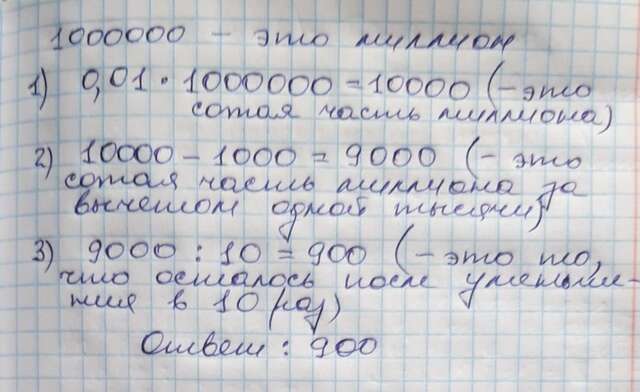 1000000 – это миллион
1) 0,01 · 1000000 = 10000 (– это
сотая часть миллиона)
2) 10000 – 1000 = 9000 (– это
сотая часть миллиона за
вычетом одной тысячи)
3) 9000 : 10 = 900 (– это то,
что осталось после уменьше-
ния в 10 раз)
Ответ : 900